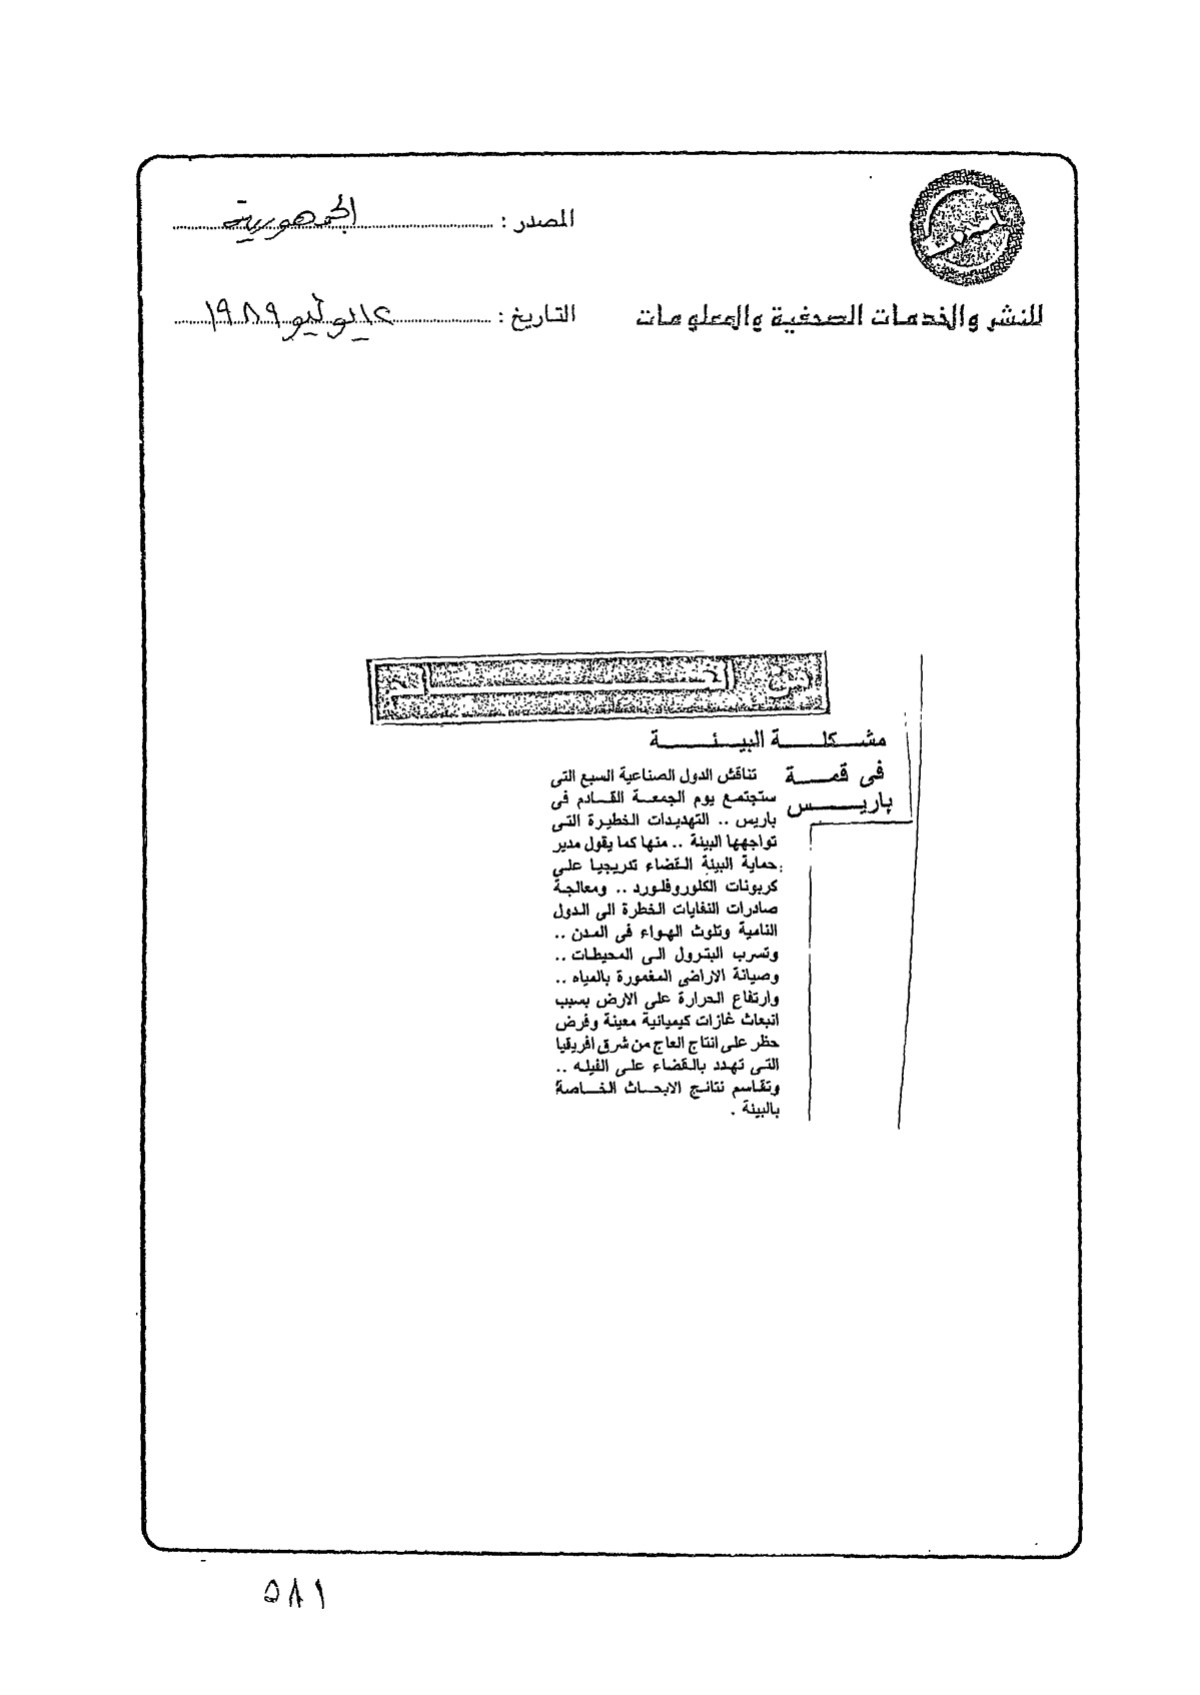 المصدر : الجمهورية
للنشر والخدمات الصحفية والمعلومات
التاريخ : ١٢ يوليو ١٩٨٩
من العالم
مشكلة البيئة
فى قمة
باريس
تناقش الدول الصناعية السبع التى
ستجتمع يوم الجمعة القادم فى
باريس .. التهديدات الخطيرة التى
تواجهها البيئة .. منها كما يقول مدير
حماية البيئة القضاء تدريجيا على
كربونات الكلوروفلورد .. ومعالجة
صادرات النفايات الخطرة الى الدول
النامية وتلوث الهواء فى المدن ..
وتسرب البترول الى المحيطات ..
وصيانة الاراضى المغمورة بالمياه ..
وارتفاع الحرارة على الارض بسبب
انبعاث غازات كيميائية معينة وفرض
حظر على انتاج العاج من شرق افريقيا
التى تهدد بالقضاء على الفيله ..
وتقاسم نتائج الابحاث الخاصة
بالبيئة .
٥٨١